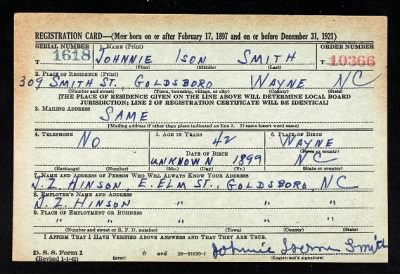 REGISTRATION CARD—(Men born on or after February 17, 1897 and on or before December 31, 1921)
SERIAL NUMBER 1. NAME (Print) ORDER NUMBER
T 1618 JOHNNIE ISON SMITH T 10366
(First) (Middle) (Last)
2. PLACE OF RESIDENCE (Print)
309 SMITH ST, GOLDSBORO WAYNE NC
(Number and street) (Town, township, village, or city) (County) (State)
[THE PLACE OF RESIDENCE GIVEN ON THE LINE ABOVE WILL DETERMINE LOCAL BOARD
JURISDICTION; LINE 2 OF REGISTRATION CERTIFICATE WILL BE IDENTICAL]
3. MAILING ADDRESS
SAME
[Mailing address if other than place indicated on line 2. If same insert word same]
4. TELEPHONE 5. AGE IN YEARS 6. PLACE OF BIRTH
NO 42 WAYNE
DATE OF BIRTH (Town or county)
UNKNOWN 1899 NC
(Exchange) (Number) (Mo.) (Day) (Yr.) (State or country)
7. NAME AND ADDRESS OF PERSON WHO WILL ALWAYS KNOW YOUR ADDRESS
J.Z. HINSON, E. ELM ST., GOLDSBORO, NC
8. EMPLOYER'S NAME AND ADDRESS
J.Z. HINSON " "
9. PLACE OF EMPLOYMENT OR BUSINESS
" " "
(Number and street or R. F. D. number) (Town) (County) (State)
I AFFIRM THAT I HAVE VERIFIED ABOVE ANSWERS AND THAT THEY ARE TRUE.
D. S. S. Form 1
(Revised 1-1-42) (over) Johnnie Smith